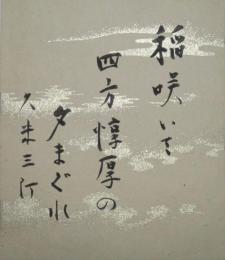 稲咲いて
四方惇厚の
夕まぐれ
久米三汀